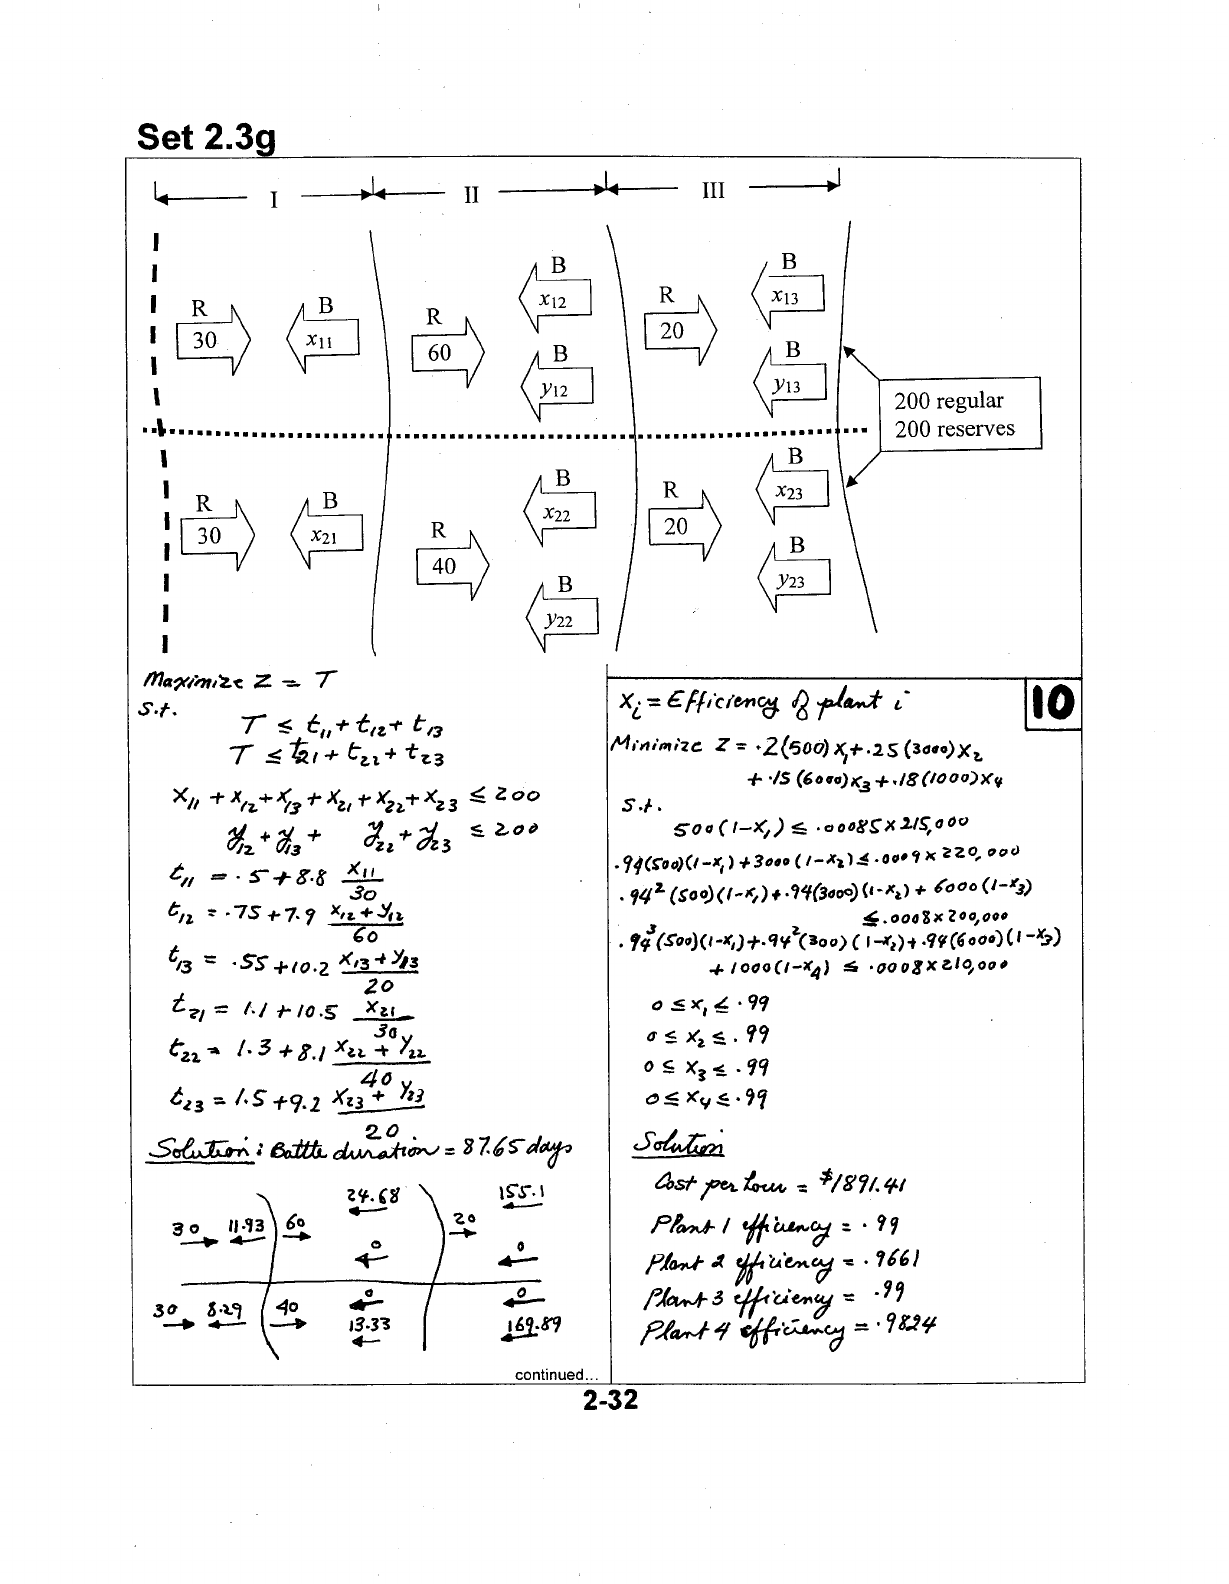 Set 2.3g
I II III
B B
R B x12 R x13
30 x11 R 20
60 B B
y12 y13
200 regular
200 reserves
B B
R B x22 R x23
30 x21 R 20
40 B B
y22 y23
Maximize Z = T
s.t.
T ≤ t11 + t12 + t13
T ≤ t21 + t22 + t23
x11 + x12 + x13 + x21 + x22 + x23 ≤ 200
y12 + y13 + y22 + y23 ≤ 200
t11 = .5 + 8.8 x11/30
t12 = .75 + 7.9 (x12 + y12)/60
t13 = .55 + 10.2 (x13 + y13)/20
t21 = 1.1 + 10.5 x21/30
t22 = 1.3 + 8.1 (x22 + y22)/40
t23 = 1.5 + 9.2 (x23 + y23)/20
Solution: Battle duration = 87.65 days
24.68 155.1
30 11.93 60 20
0 0
30 8.29 40 0 0
13.33 169.89
continued...
10
xi = Efficiency of plant i
Minimize Z = .2(500)x1 + .25(3000)x2
+ .15(6000)x3 + .18(1000)x4
s.t.
500(1-x1) ≤ .00085 x 215,000
.94(500)(1-x1) + 3000(1-x2) ≤ .0009 x 220,000
.94² (500)(1-x1) + .94(3000)(1-x2) + 6000(1-x3)
≤ .0008 x 200,000
.94³ (500)(1-x1) + .94²(300)(1-x2) + .94(6000)(1-x3)
+ 1000(1-x4) ≤ .0008 x 210,000
0 ≤ x1 ≤ .99
0 ≤ x2 ≤ .99
0 ≤ x3 ≤ .99
0 ≤ x4 ≤ .99
Solution
Cost per hour = $1891.41
Plant 1 efficiency = .99
Plant 2 efficiency = .9661
Plant 3 efficiency = .99
Plant 4 efficiency = .9824
2-32